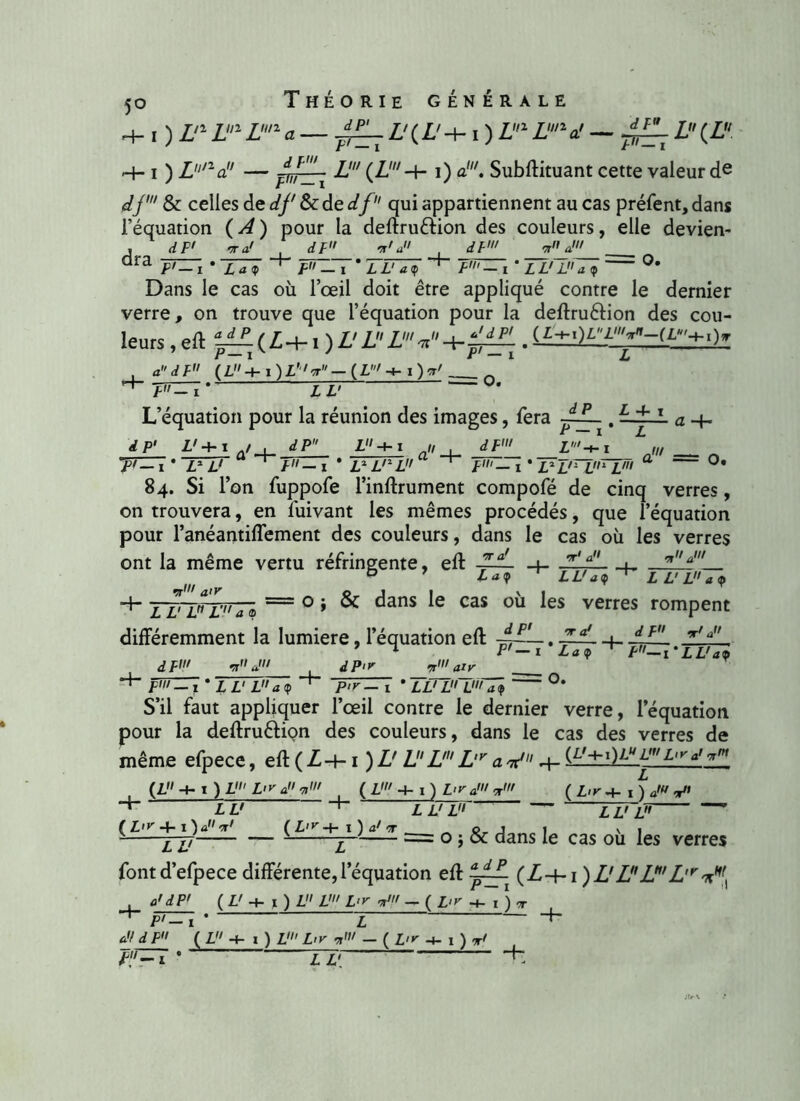 50 THÉORIE GÉNÉRALE
+ 1 ) L'² L''² L'''² a — dP'/P'—1 L' (L' + 1) L''² L'''² a' — dP''/P''—1 L'' (L''
+ 1 ) L'''² a'' — dP'''/P'''—1 L''' (L''' + 1) a'''. Subſtituant cette valeur de
df''' & celles de df' & de df'' qui appartiennent au cas préſent, dans
l'équation (A) pour la deſtruction des couleurs, elle devien-
dra dP'/P'—1 · πa'/Laφ + dP''/P''—1 · π'a''/LL'aφ + dP'''/P'''—1 · π''a'''/LL'L''aφ = 0.
Dans le cas où l'œil doit être appliqué contre le dernier
verre, on trouve que l'équation pour la deſtruction des cou-
leurs, eſt adP/P—1 (L + 1) L' L'' L''' π'' + a'dP'/P'—1 · (L+1)L''L'''π''—(L'''+1)π/L
+ a''dP''/P''—1 · (L''+1)L'''π''—(L'''+1)π'/LL' = 0.
L'équation pour la réunion des images, ſera dP/P—1 · L+1/L a +
dP'/P'—1 · L'+1/L²L' a' + dP''/P''—1 · L''+1/L²L'²L'' a'' + dP'''/P'''—1 · L'''+1/L²L'²L''²L''' a''' = 0.
84. Si l'on ſuppoſe l'inſtrument compoſé de cinq verres,
on trouvera, en ſuivant les mêmes procédés, que l'équation
pour l'anéantiſſement des couleurs, dans le cas où les verres
ont la même vertu réfringente, eſt πa'/Laφ + π'a''/LL'aφ + π''a'''/LL'L''aφ
+ π'''aⁱᵛ/LL'L''L'''aφ = 0 ; & dans le cas où les verres rompent
différemment la lumiere, l'équation eſt dP'/P'—1 · πa'/Laφ + dP''/P''—1 · π'a''/LL'aφ
+ dP'''/P'''—1 · π''a'''/LL'L''aφ + dPⁱᵛ/Pⁱᵛ—1 · π'''aⁱᵛ/LL'L''L'''aφ = 0.
S'il faut appliquer l'œil contre le dernier verre, l'équation
pour la deſtruction des couleurs, dans le cas des verres de
même eſpece, eſt (L + 1 ) L' L'' L''' Lⁱᵛ a π''' + (L'+1)L''L'''Lⁱᵛa'π'''/L
+ (L''+1)L'''Lⁱᵛa''π'''/LL' + (L'''+1)Lⁱᵛa'''π'''/LL'L'' — (Lⁱᵛ+1)a'''π''/LL'L'' —
(Lⁱᵛ+1)a''π'/LL' — (Lⁱᵛ+1)a'π/L = 0 ; & dans le cas où les verres
ſont d'eſpece différente, l'équation eſt adP/P—1 (L + 1 ) L' L'' L''' Lⁱᵛ π'''
+ a'dP'/P'—1 · (L'+1)L''L'''Lⁱᵛπ'''—(Lⁱᵛ+1)π/L +
a''dP''/P''—1 · (L''+1)L'''Lⁱᵛπ'''—(Lⁱᵛ+1)π'/LL' +